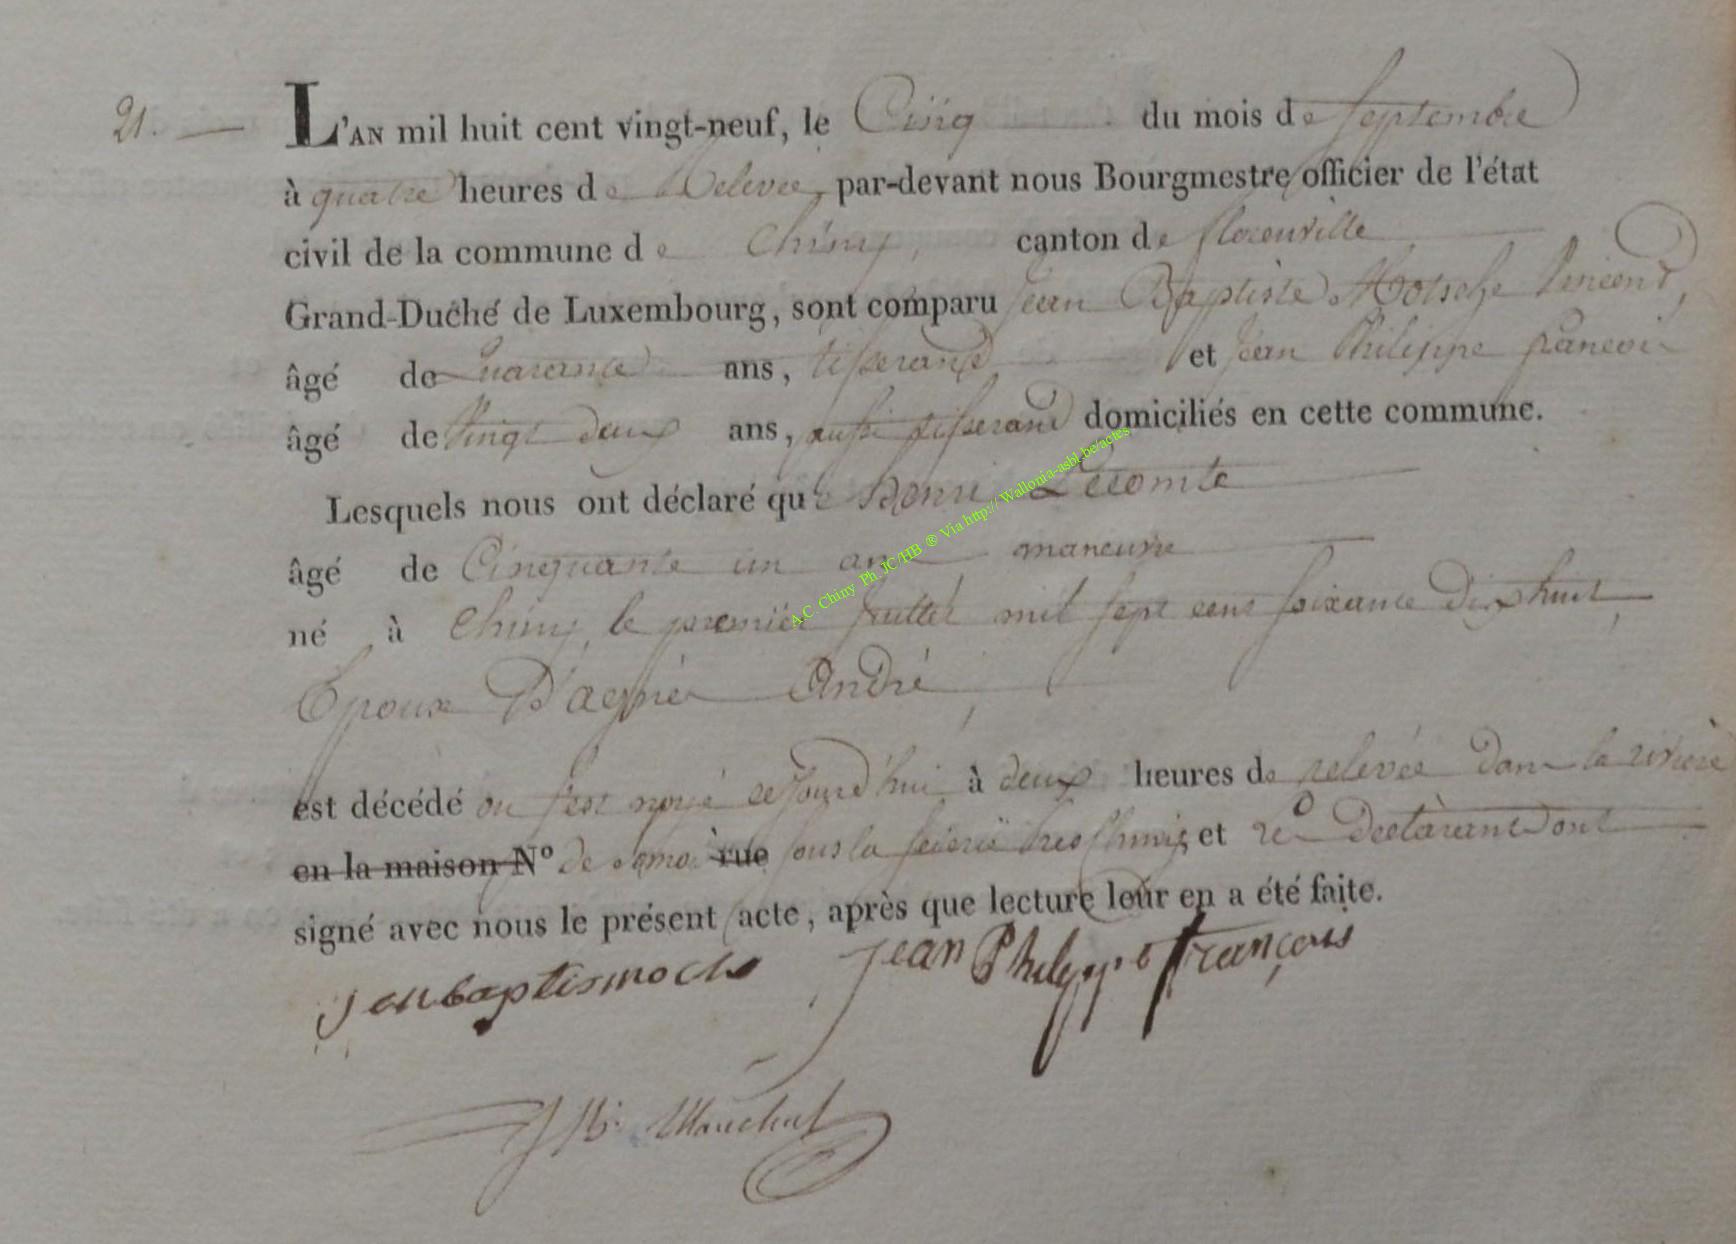 21. L'AN mil huit cent vingt-neuf, le Cinq du mois de septembre
à quatre heures de Relevée, par-devant nous Bourgmestre officier de l'état
civil de la commune de Chiny, canton de florenville
Grand-Duché de Luxembourg, sont comparu Jean Baptiste Vincent,
âgé de Quarante ans, tisserand et Jean Philippe françois
âgé de Vingt deux ans, aussi tisserand domiciliés en cette commune.
Lesquels nous ont déclaré que Henri Lecomte
âgé de Cinquante un ans maneuvre
né à Chiny le premier mil sept cent soixante Dix huit,
Epoux D'agnès André,
est décédé ou s'est noyé cejourd'hui à deux heures de relevée dans la rivière
en la maison N° de semoi rue sous la près Chiny, et les Declarants ont
signé avec nous le présent acte, après que lecture leur en a été faite.
Jean Philippe françois
A.C. Chiny Ph. JC/HB ® Via http://Wallonia-asbl.be/actes